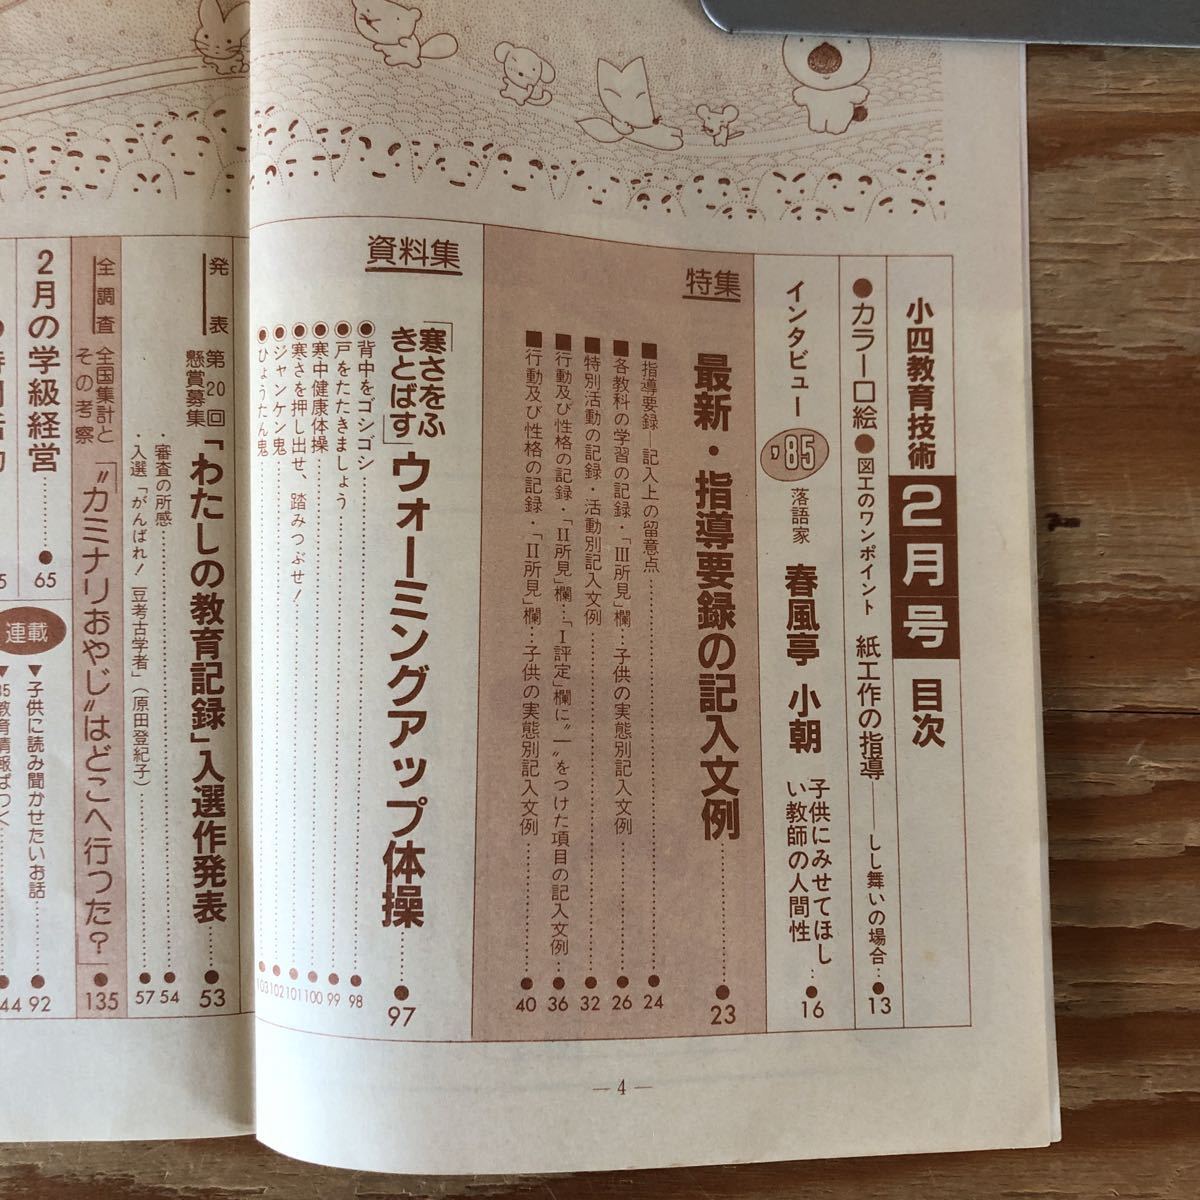 小四教育技術 2月号 目次
●カラー口絵●図工のワンポイント 紙工作の指導――しし舞いの場合…●13
インタビュー '85 落語家 春風亭 小朝 子供にみせてほし
い教師の人間性…●16
特集
最新・指導要録の記入文例…●23
■指導要録―記入上の留意点…●24
■各教科の学習の記録・「Ⅲ所見」欄…子供の実態別記入文例…●26
■特別活動の記録・活動別記入文例…●32
■行動及び性格の記録・「Ⅱ所見」欄…「Ⅰ評定」欄に“一”をつけた項目の記入文例…●36
■行動及び性格の記録・「Ⅱ所見」欄…子供の実態別記入文例…●40
資料集
「寒さをふ
きとばす」ウォーミングアップ体操…●97
●背中をゴシゴシ…●98
●戸をたたきましょう…●99
●寒中健康体操…●100
●寒さを押し出せ、踏みつぶせ!…●101
●ジャンケン鬼…●102
●ひょうたん鬼…●103
発表
第20回
懸賞募集「わたしの教育記録」入選作発表…●53
・審査の所感…●54
・入選「がんばれ!豆考古学者」(原田登紀子)…●57
全調査
全国集計と
その考察
「“カミナリおやじ”はどこへ行った?」●135
2月の学級経営…●65
連載
▼子供に読み聞かせたいお話…●92
教育情報ぱっく…●44
—4—